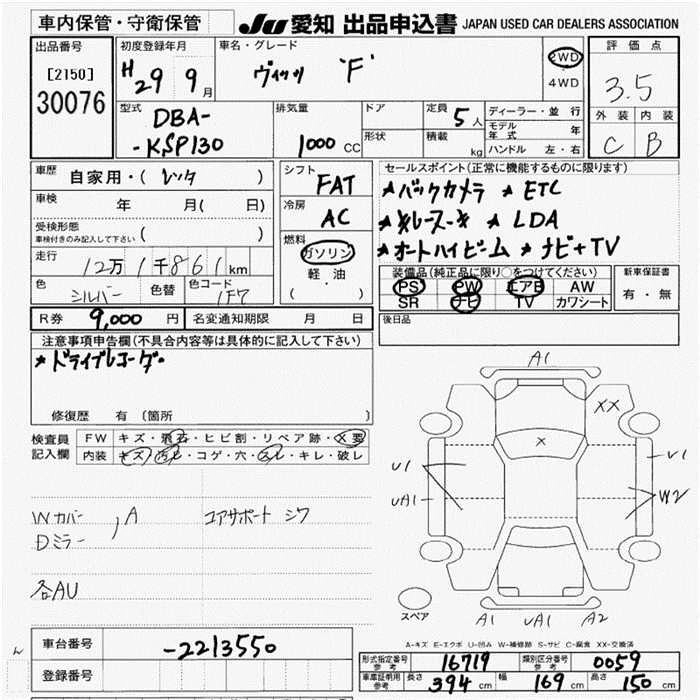 車内保管・守衛保管 JU 愛知 出品申込書 JAPAN USED CAR DEALERS ASSOCIATION
出品番号 初度登録年月 車名・グレード 評価点
[2150] H29 9月 ヴィッツ 'F' 2WD
30076 4WD 3.5
型式 排気量 ドア 定員 5人 ディーラー・並行 外装 内装
DBA- モデル年式 年 C B
-KSP130 1000 CC 形状 積載 kg ハンドル 左・右
車歴 自家用・( レンタ ) シフト FAT セールスポイント(正常に機能するものに限ります)
車検 年 月( 日) 冷房 AC ★バックカメラ ★ETC
受検形態 ( ) ★LDA
車検付きのみ記入して下さい 燃料 ガソリン ★オートハイビーム ★ナビ+TV
走行 12万1千861km 軽油 装備品(純正品に限り○をつけてください) 新車保証書
色 シルバー 色替 色コード 1F7 ( ・ ) PS PW エアB AW 有・無
SR ナビ TV カワシート
R券 9,000円 名変通知期限 月 日 後日品
注意事項申告欄(不具合内容等は具体的に記入して下さい)
★ドライブレコーダー
修復歴 有 (箇所 )
検査員 FW キズ・飛石・ヒビ割・リペア跡・X要
記入欄 内装 キズ・汚レ・コゲ・穴・スレ・キレ・破レ
Wカバー , A コアサポート シワ
Dミラー
各AU
A1
XX
X
U1 V1
UA1 W2
スペア A1 UA1 A2
A-キズ E-エクボ U-凹み W-補修跡 S-サビ C-腐食 XX-交換済
車台番号 -2213550
登録番号
形式指定番号 参考 16719 類別区分番号 参考 0059
車庫証明用 参考 長さ 394cm 幅 169cm 高さ 150cm